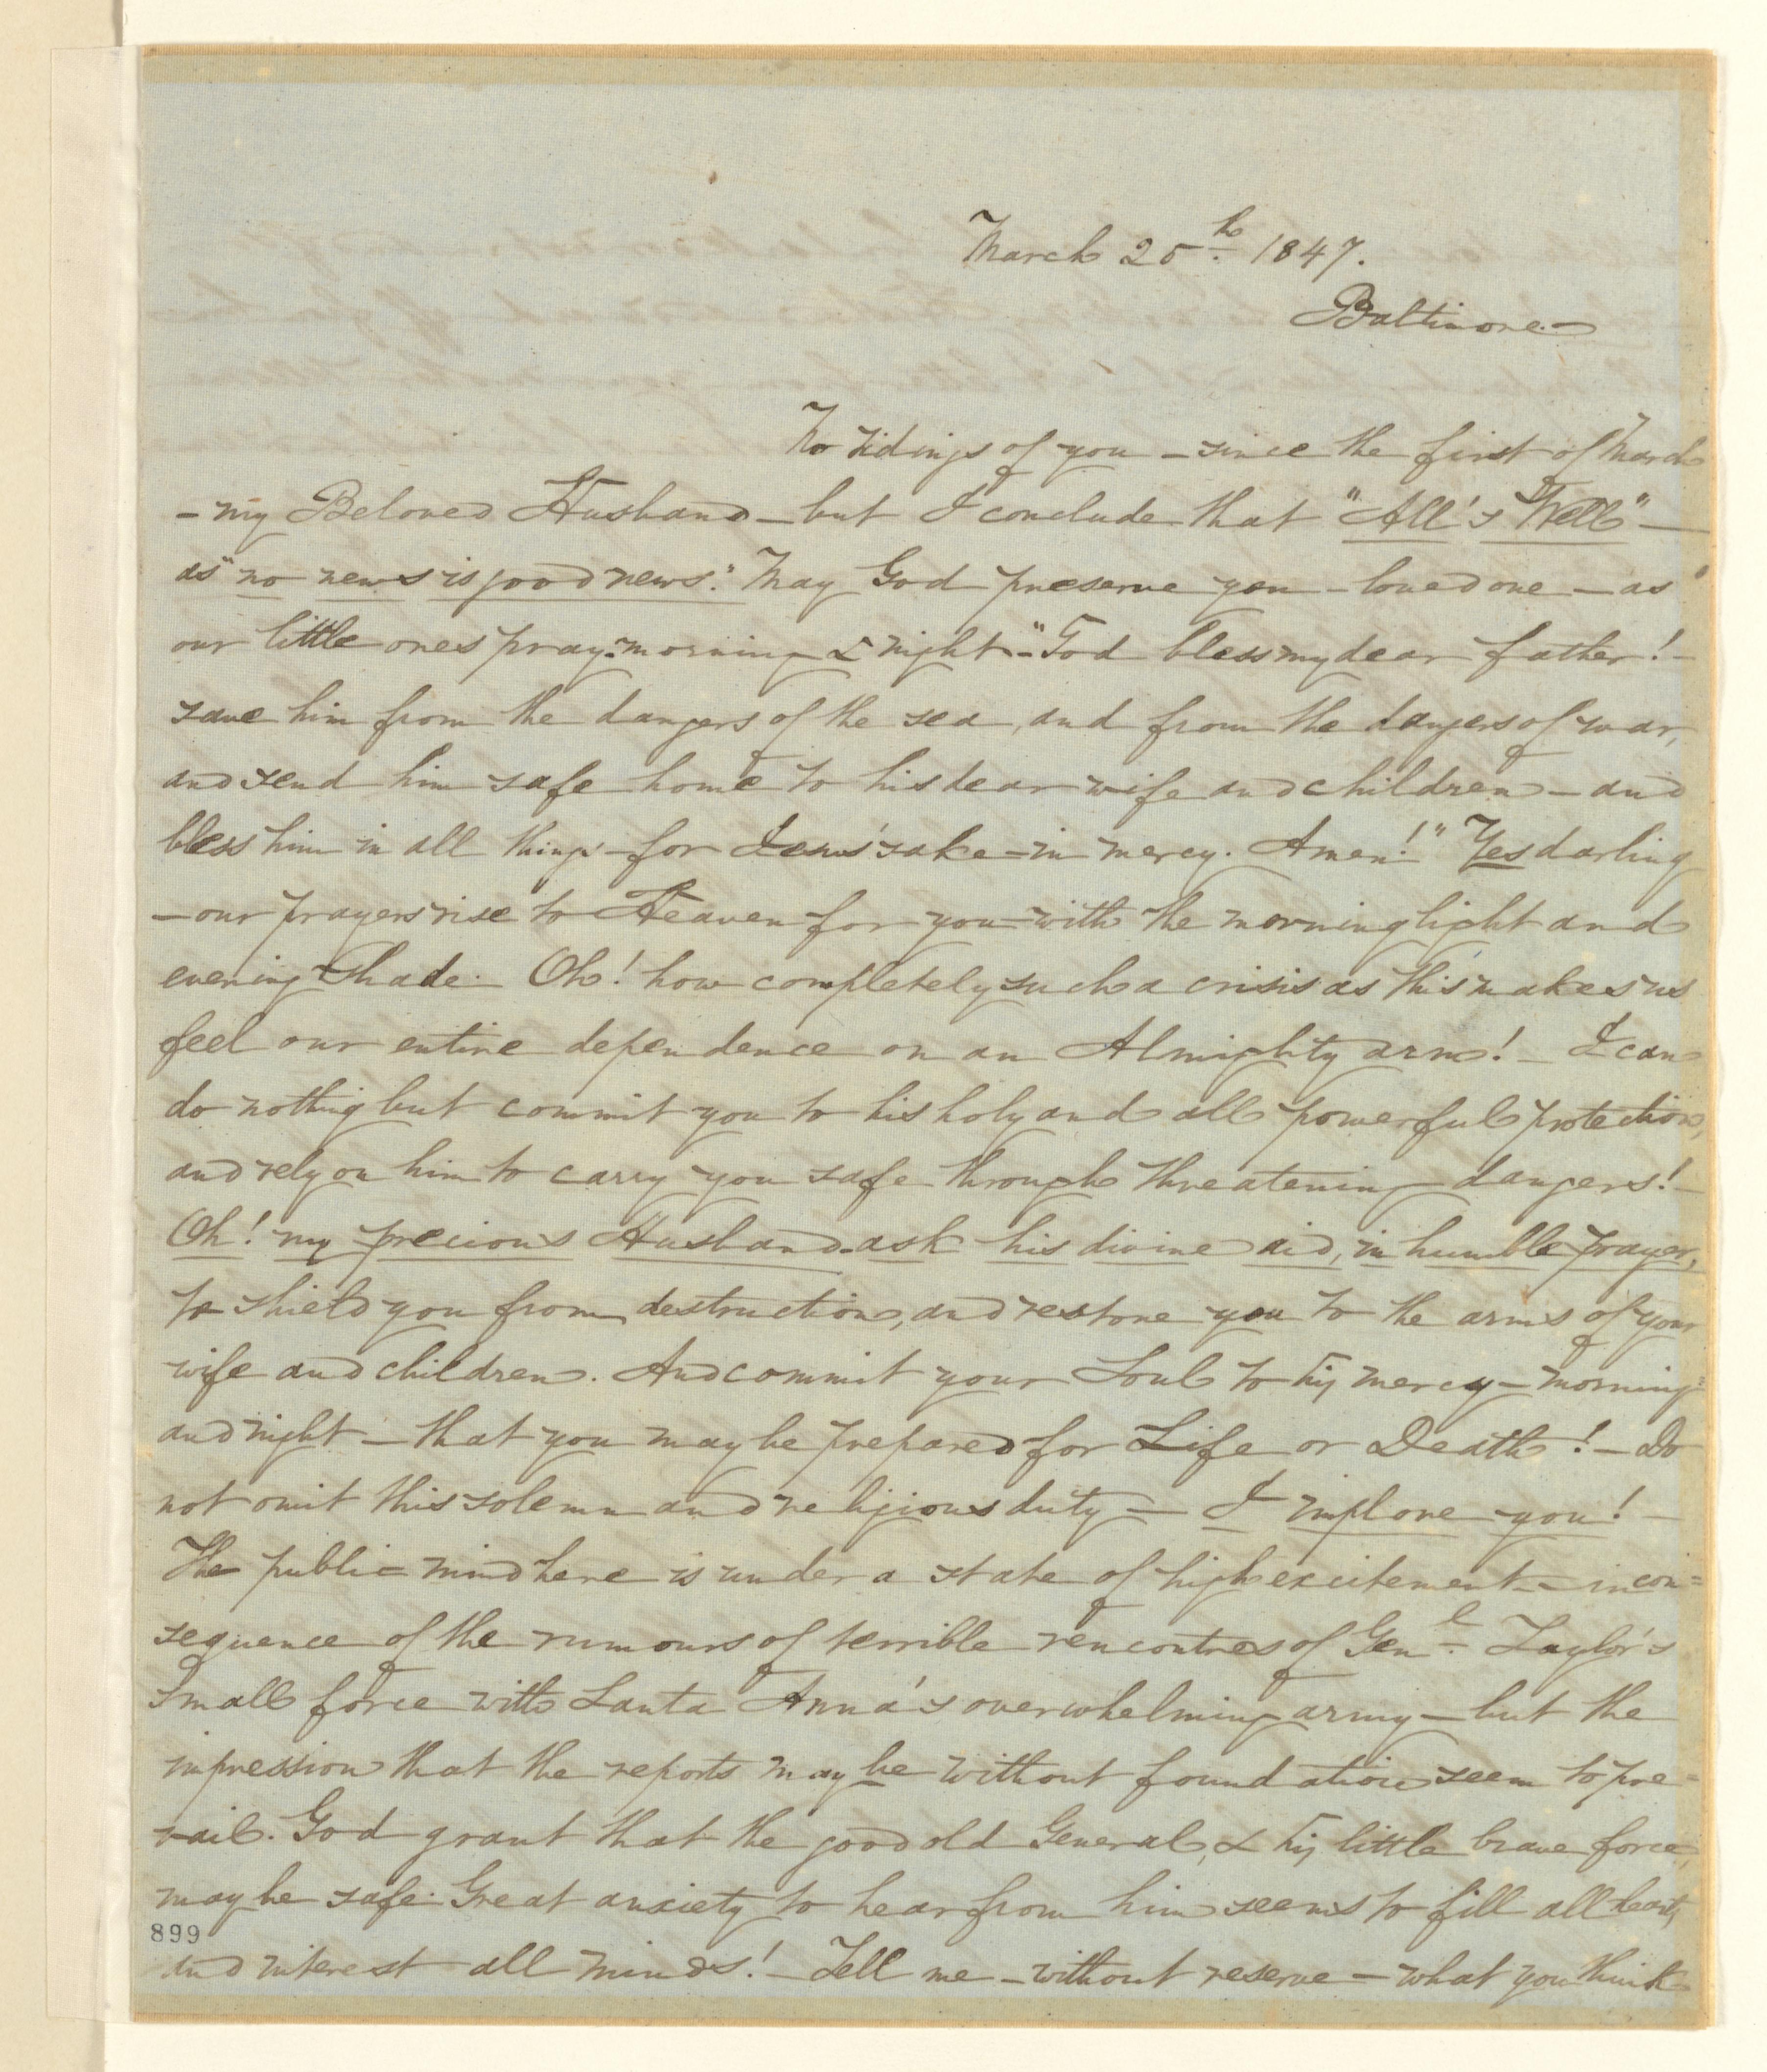 March 25th. 1847.
Baltimore.—
No tidings of you — since the first of March
— my Beloved Husband — but I conclude that "All's Well" —
as "no news is good news." May God preserve you — loved one — as
our little ones pray — morning & night — "God bless my dear father! —
save him from the dangers of the sea, and from the dangers of war,
and send him safe home to his dear wife and children — and
bless him in all things — for Jesus' sake — in mercy. Amen!" Yes darling
— our prayers rise to Heaven for you — with the morning light and
evening shade. Oh! how completely such a crisis as this makes us
feel our entire dependence on an Almighty arm! — I can
do nothing but commit you to his holy and all powerful protection,
and rely on him to carry you safe through threatening dangers! —
Oh! my precious Husband — ask his divine aid, in humble prayer,
to shield you from destruction, and restore you to the arms of your
wife and children. And commit your Soul to his mercy — morning
and night — that you may be prepared for Life or Death! — Do
not omit this solemn and religious duty — I implore you! —
The public mind here is under a state of high excitement — in con=
sequence of the rumours of terrible rencontres of Genl. Taylor's
small force with Santa Anna's overwhelming army — but the
impression that the reports may be without foundation seem to pre=
vail. God grant that the good old General, & his little brave force,
may be safe. Great anxiety to hear from him seems to fill all hearts,
899
and interest all minds! — Tell me — without reserve — what you think